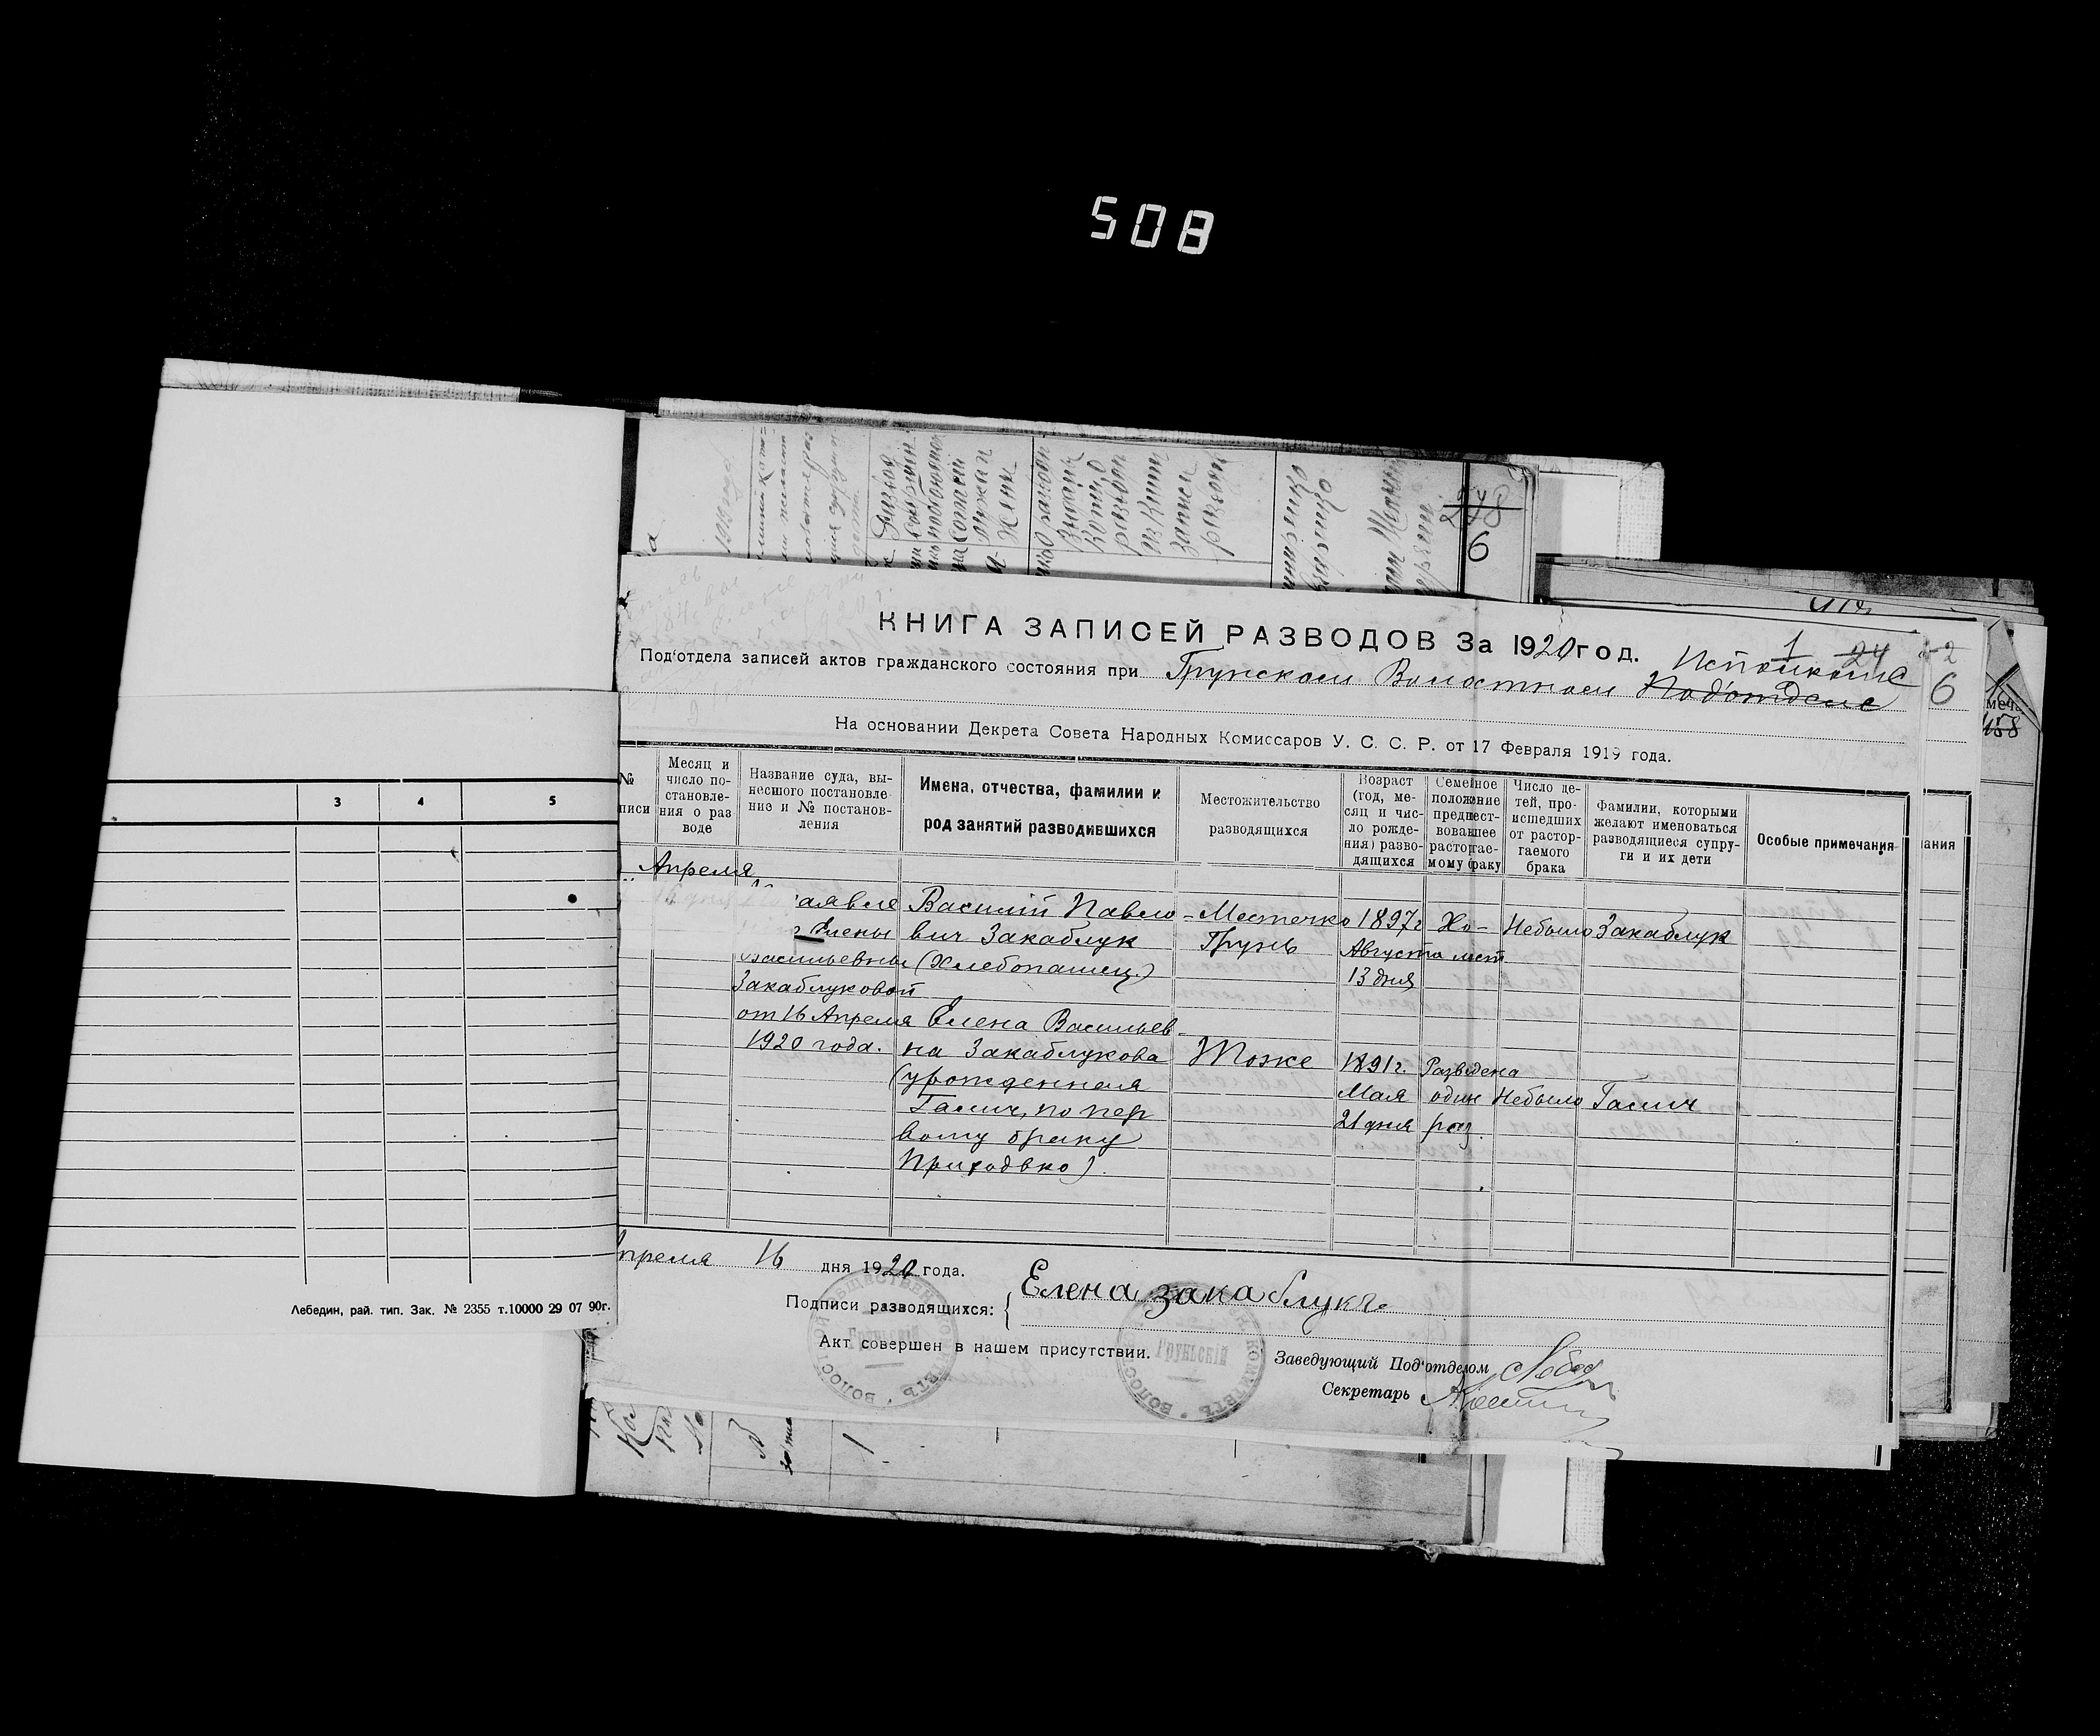 508
278
6
КНИГА ЗАПИСЕЙ РАЗВОДОВ За 1920 год.
1 24
Под'отдела записей актов гражданского состояния при Грунском Волостном Под'отделе
Исполкоме
6
На основании Декрета Совета Народных Комиссаров У. С. С. Р. от 17 Февраля 1919 года.
№
писи
Месяц и
число по-
становле-
ния о раз
воде
Название суда, вы-
несшого постановле
ние и № постанов-
ления
Имена, отчества, фамилии и
род занятий разводившихся
Местожительство
разводящихся
Возраст
(год, ме-
сяц и чис-
ло рожде-
ния) разво-
дящихся
Семейное
положение
предшест-
вовавшее
расторгае-
мому браку
Число де-
тей, про-
исшедших
от растор-
гаемого
брака
Фамилии, которыми
желают именоваться
разводящиеся супру-
ги и их дети
Особые примечания
ания
Апреля
16 дня
аявле
Елены
Васильевны
Закаблуковой
от 16 Апреля
1920 года.
Василий Павло-
вич Закаблук
(Хлебопашец)
Местечко
Грунь
1897 г
Августа
13 дня
Хо-
лост
Небыло
Закаблук
Елена Васильев-
на Закаблукова
(урожденная
Галич, по пер
вому браку
Приходько).
Тоже
1891 г.
Мая
21 дня
Разведена
один
раз.
Небыло
Галич
преля 16 дня 1920 года.
Подписи разводящихся:
Елена закаблукъ
Акт совершен в нашем присутствии.
Заведующий Под'отделом
Секретарь
Грунскій
Грунскій
3 4 5
Лебедин, рай. тип. Зак. № 2355 т.10000 29 07 90г.